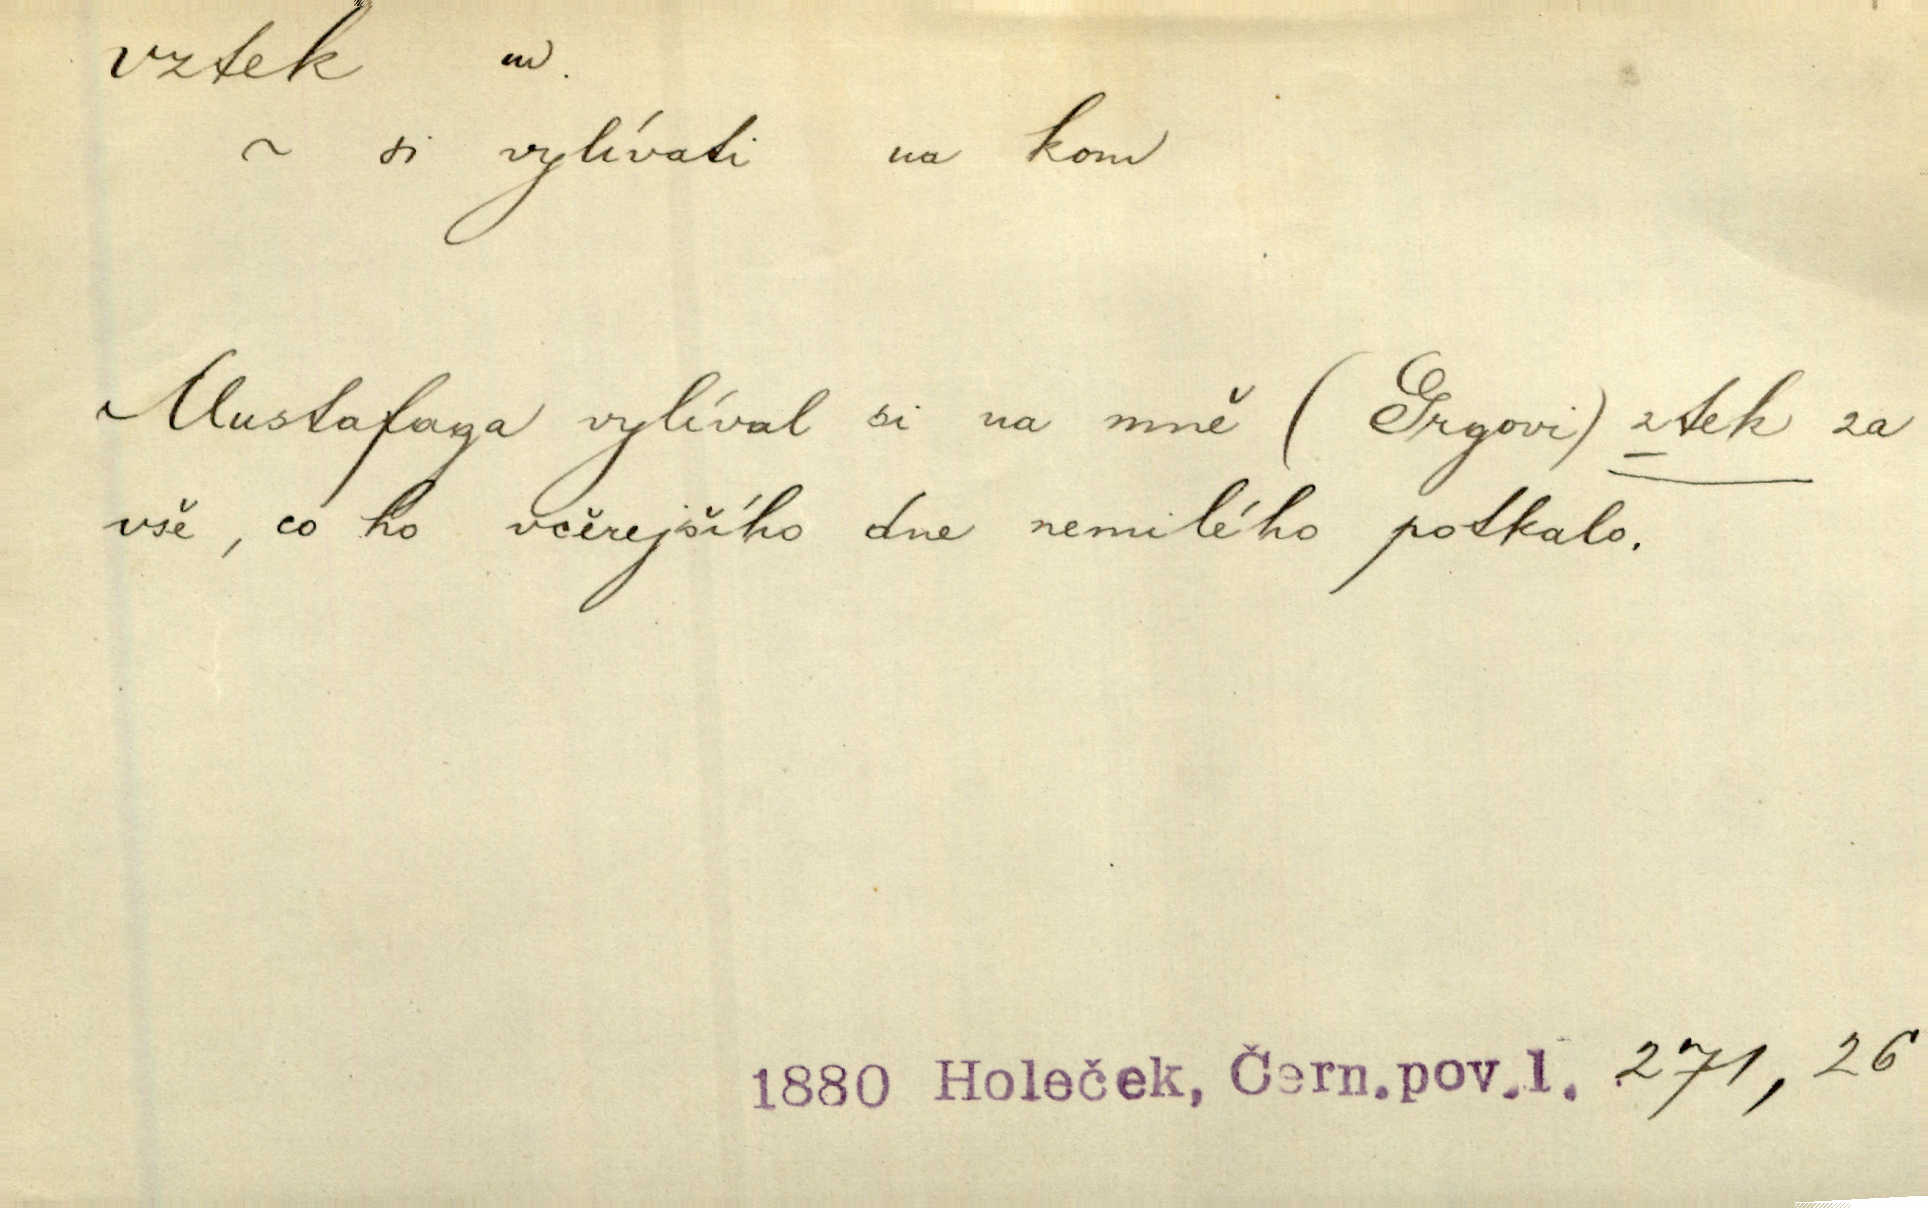 vztek m.
~ si vylívati na kom
Mustafaga vylíval si na mně (Grgovi) ztek za
vše, co ho včerejšího dne nemilého potkalo.
1880 Holeček, Čern.pov.1. 271, 26